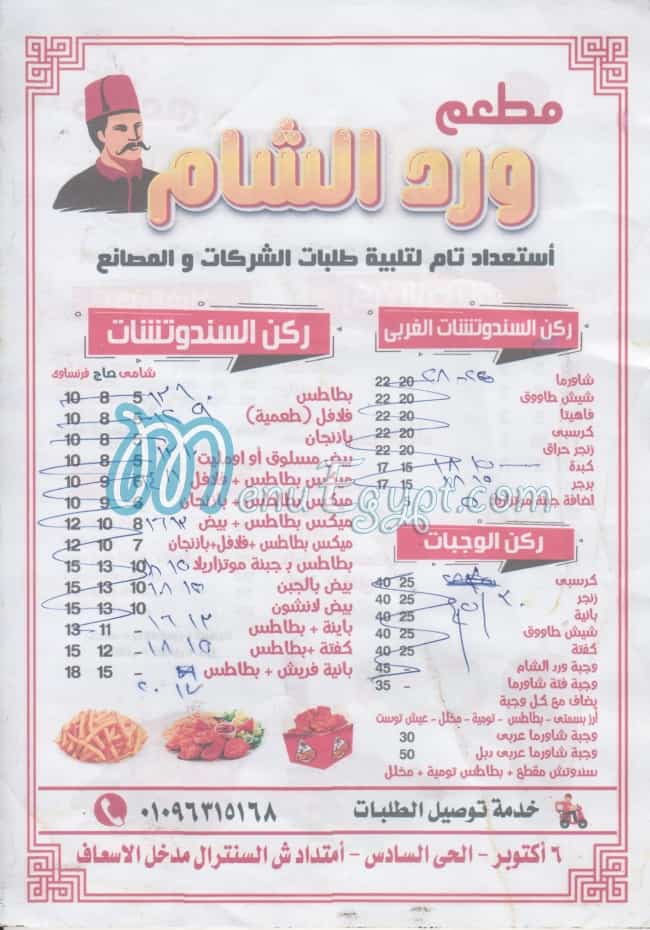 مطعم
ورد الشام
أستعداد تام لتلبية طلبات الشركات و المصانع
ركن السندوتشات الغربى
شاورما 20 22
شيش طاووق 20 22
فاهيتا 20 22
كرسبى 20 22
زنجر حراق 20 22
كبدة 15 17
برجر 15 17
اضافة جبنة موتزاريلا
ركن الوجبات
كرسبى 25 40
زنجر 25 40
بانية 25 40
شيش طاووق 25 40
كفتة 25 40
وجبة ورد الشام 45
وجبة فتة شاورما - 35
يضاف مع كل وجبة
أرز بسمتى - بطاطس - تومية - مخلل - عيش توست
وجبة شاورما عربى 30
وجبة شاورما عربى دبل 50
سندوتش مقطع + بطاطس تومية + مخلل
ركن السندوتشات
شامى صاج فرنساوى
بطاطس 5 8 10
فلافل (طعمية) 8 10
باذنجان 8 10
بيض مسلوق أو اومليت 8 10
ميكس بطاطس + فلافل 6 9 10
ميكس بطاطس + باذنجان 10
ميكس بطاطس + بيض 8 10 12
ميكس بطاطس +فلافل+باذنجان 7 10 12
بطاطس بـ جبنة موتزاريلا 10 13 15
بيض بالجبن 10 13 15
بيض لانشون 10 13 15
بانية + بطاطس - 11 13
كفتة + بطاطس - 12 15
بانية فريش + بطاطس - 15 18
MenuEgypt.com
خدمة توصيل الطلبات
٠١٠٩٦٣١٥١٦٨
٦ أكتوبر - الحى السادس - أمتداد ش السنترال مدخل الاسعاف